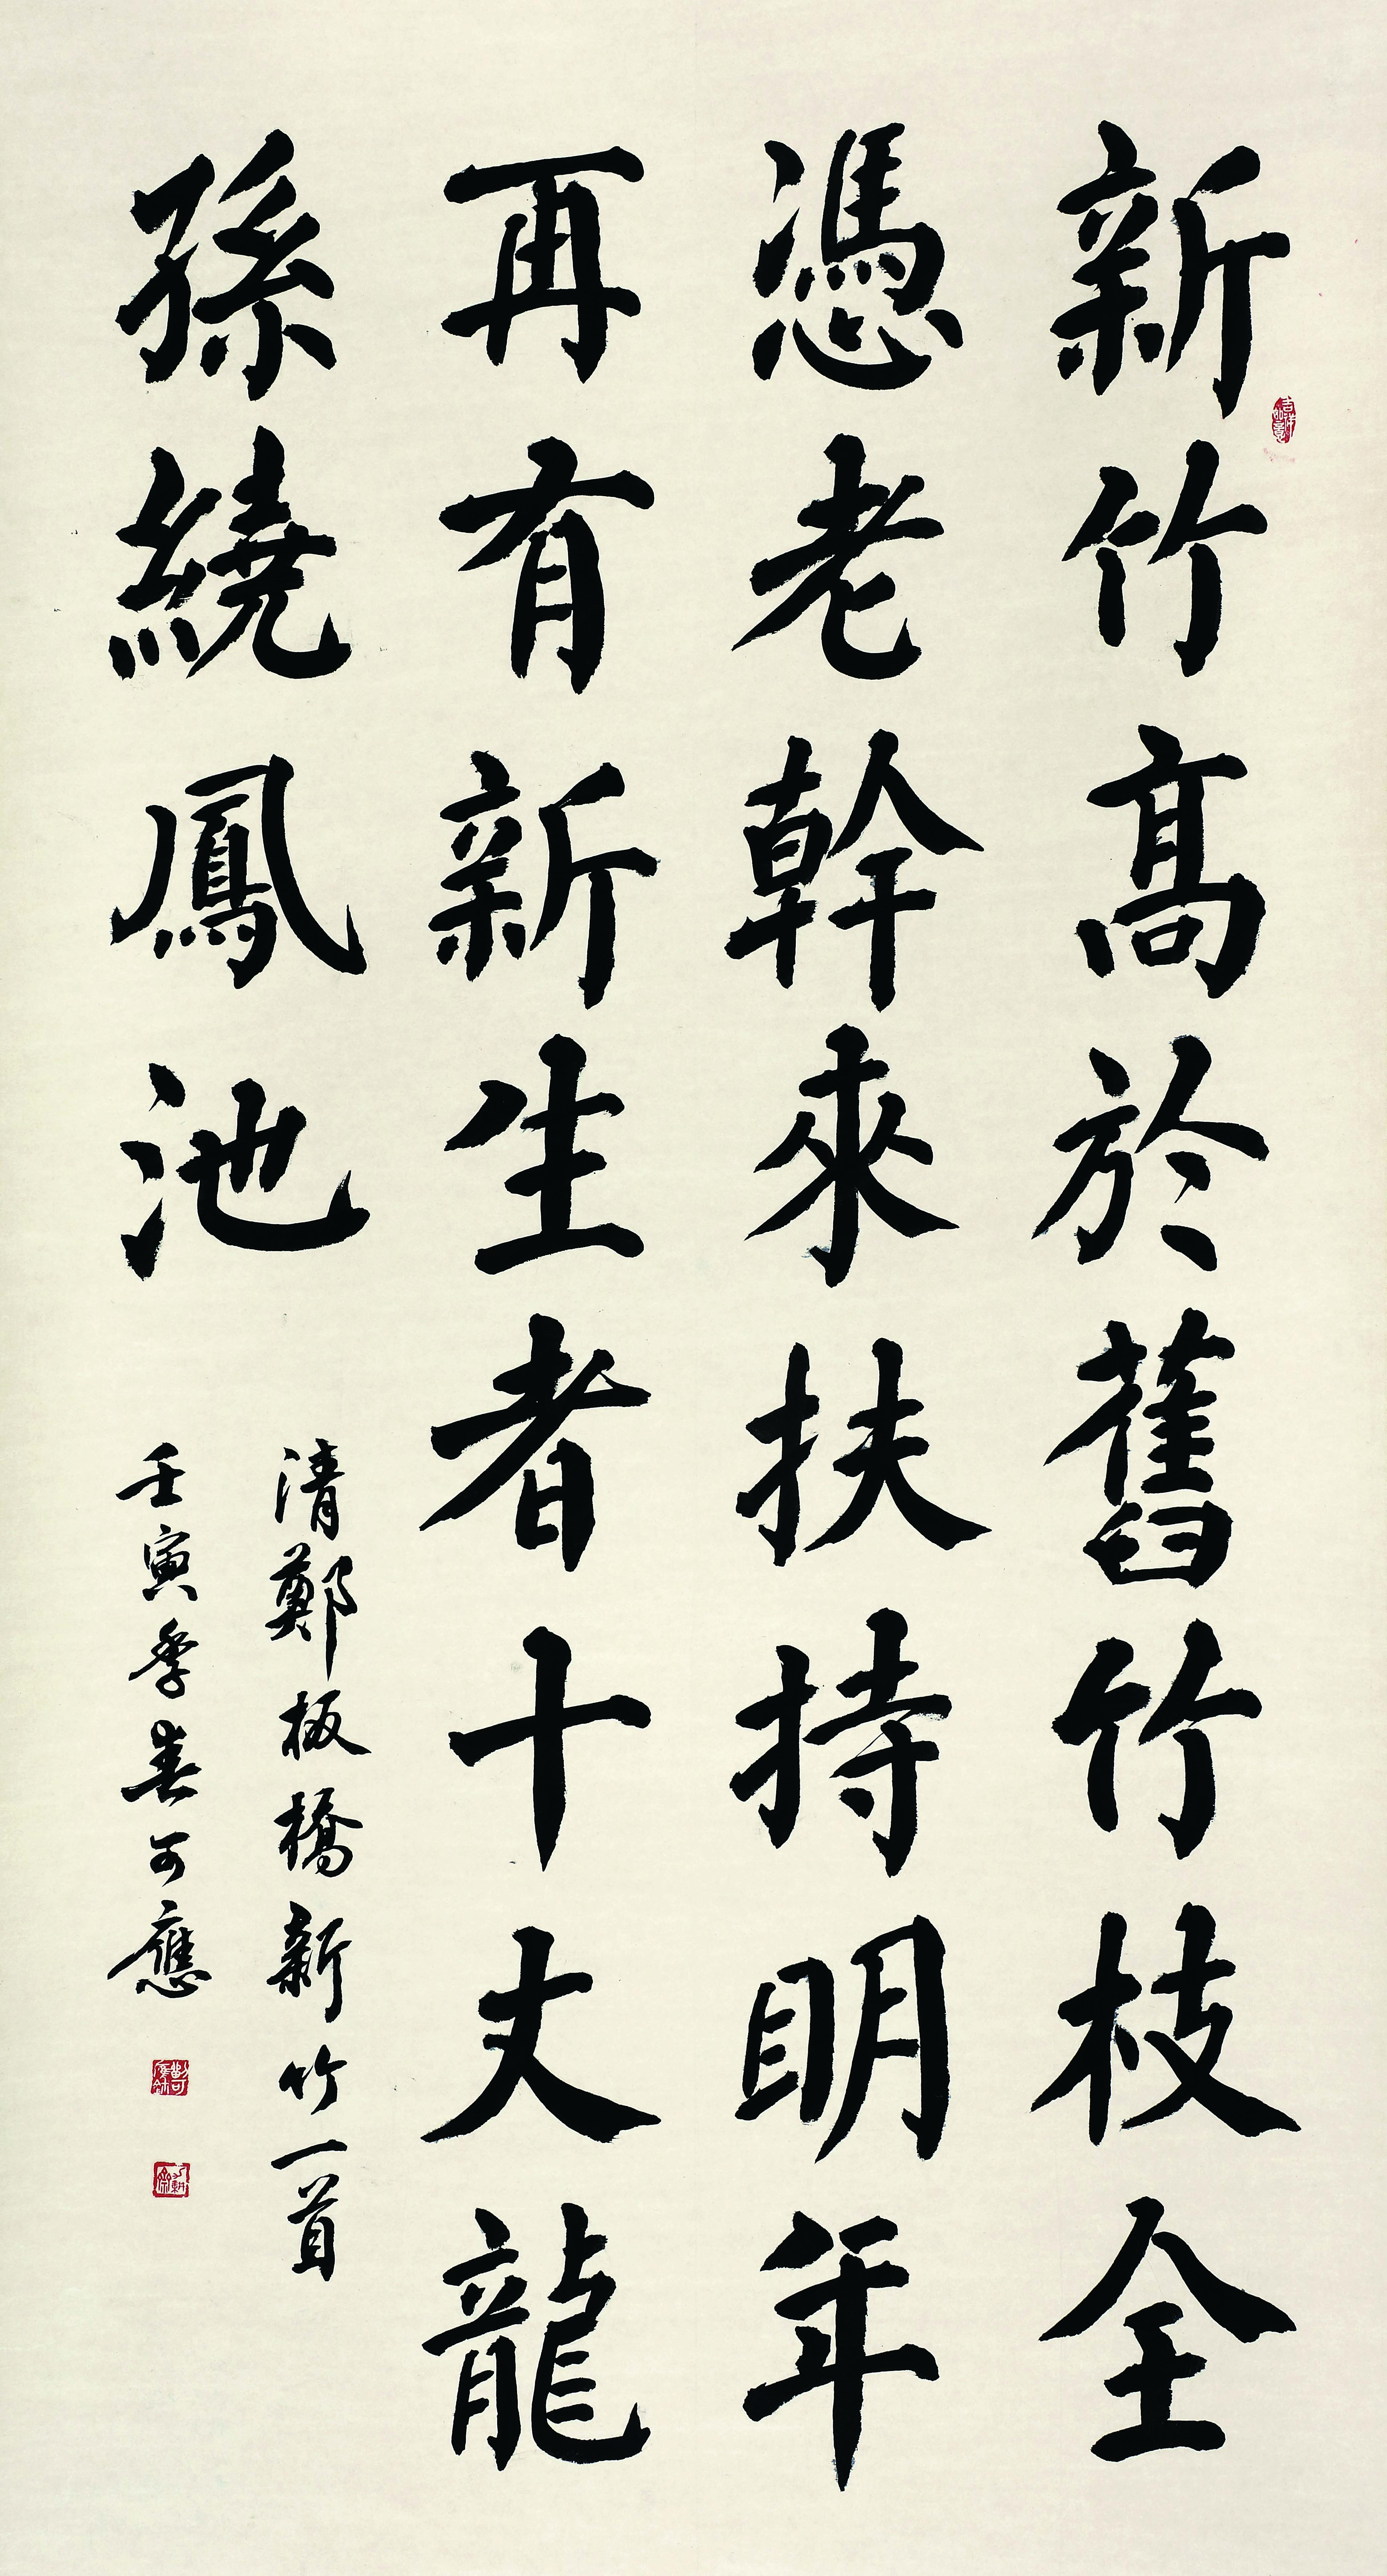 新竹高於舊竹枝全
憑老幹來扶持明年
再有新生者十丈龍
孫繞鳳池
清鄭板橋新竹一首
壬寅季春可應